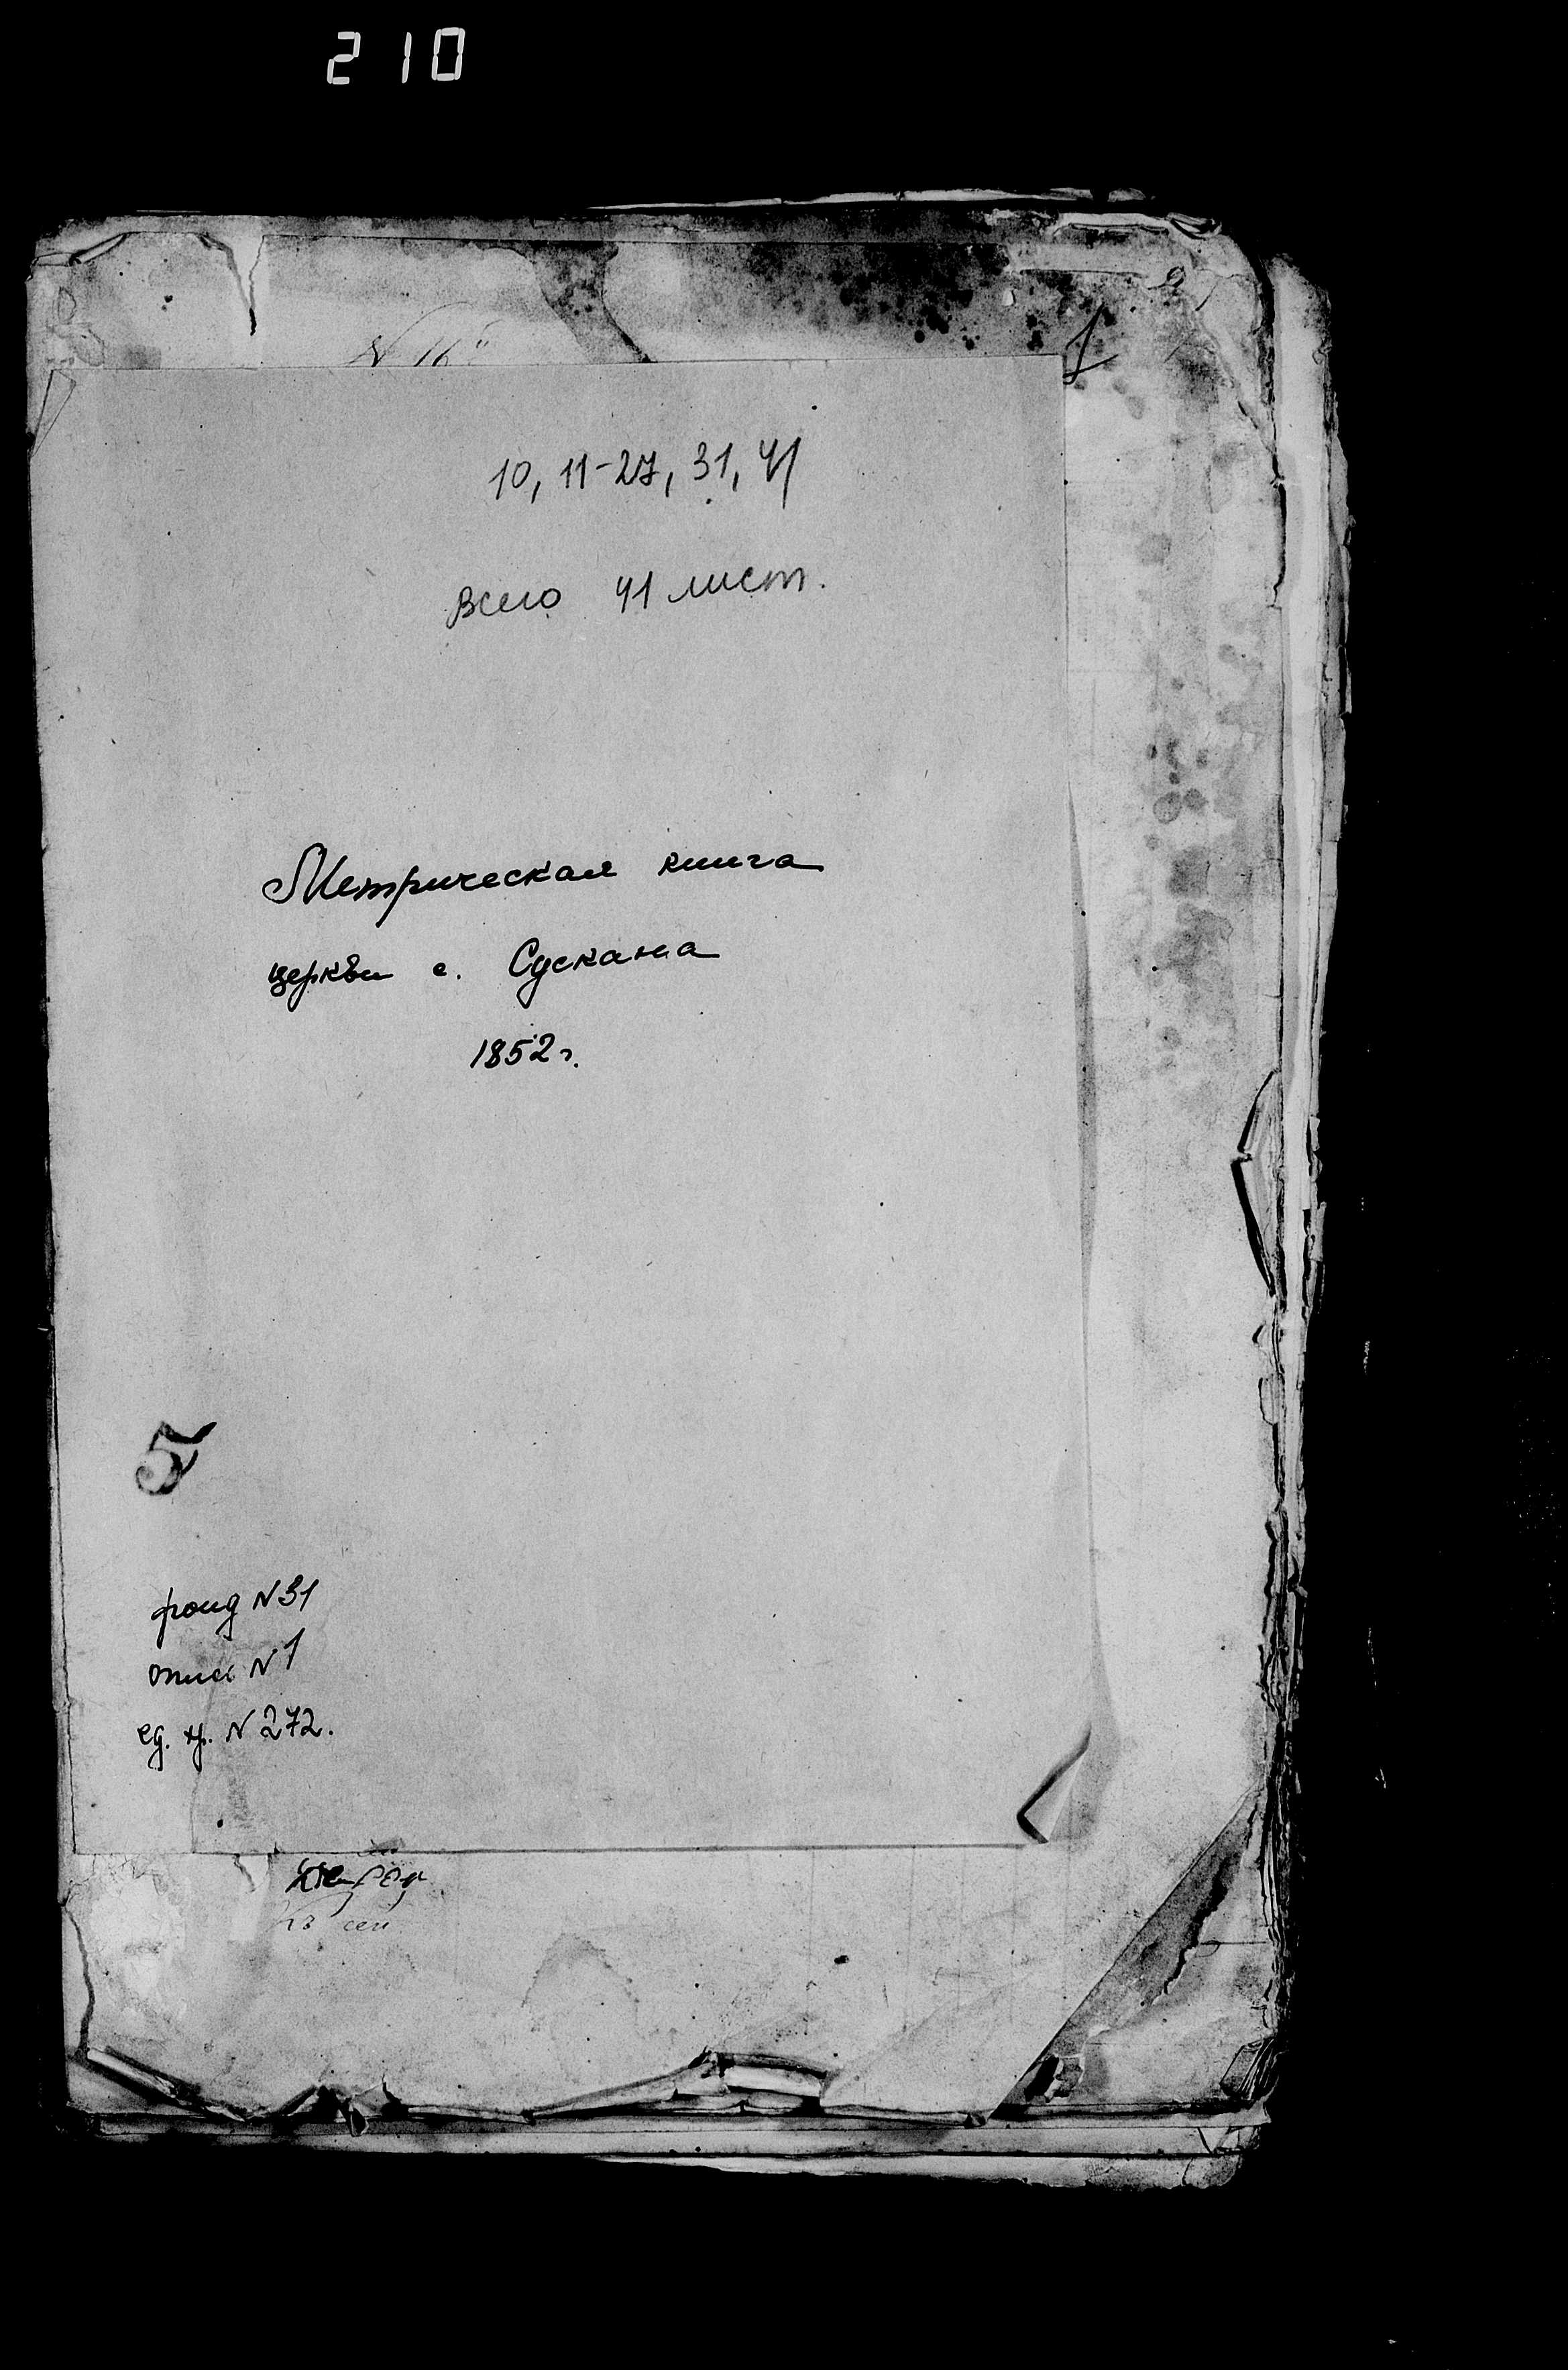 210
N 16
1
10, 11-27, 31, 41
всего 41 лист.
Метрическая книга
церкви с. Сускана
1852 г.
5
фонд N 31
опись N 1
ед. хр. N 272.